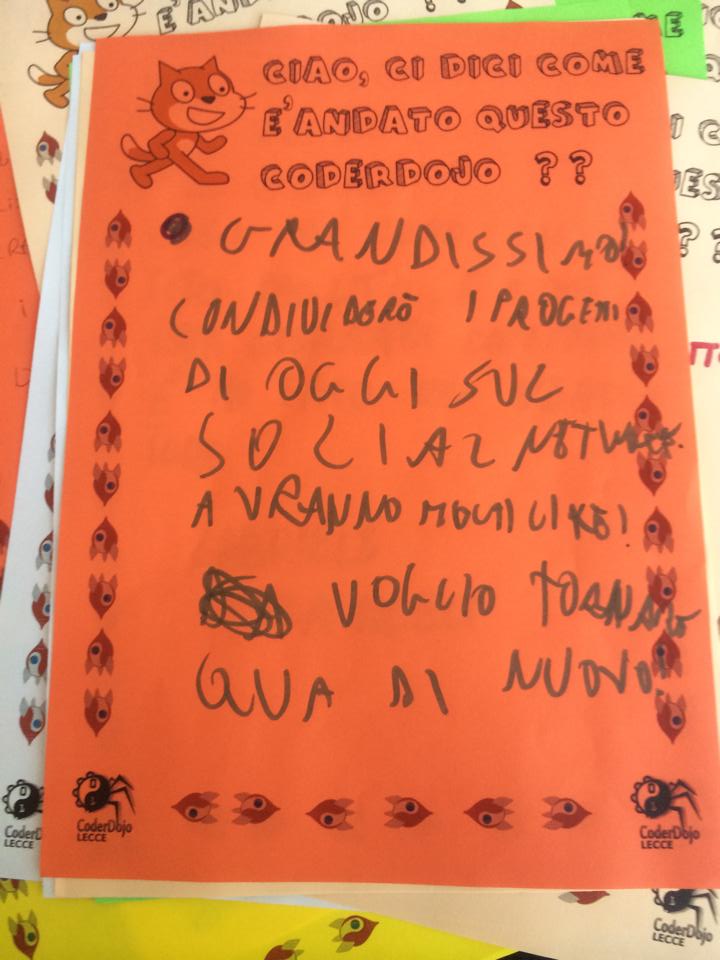 CIAO, CI DICI COME
E'ANDATO QUESTO
CODERDOJO ??
GRANDISSIMO!
CONDIVIDERÒ I PROGETTI
DI OGGI SUL
SOCIAL NETWORK.
AVRANNO MOLTI LIKE!
VOGLIO TORNARE
QUA DI NUOVO.
CoderDojo
LECCE
CoderDojo
LECCE
CoderD
LECCE
CoderDojo
LECCE